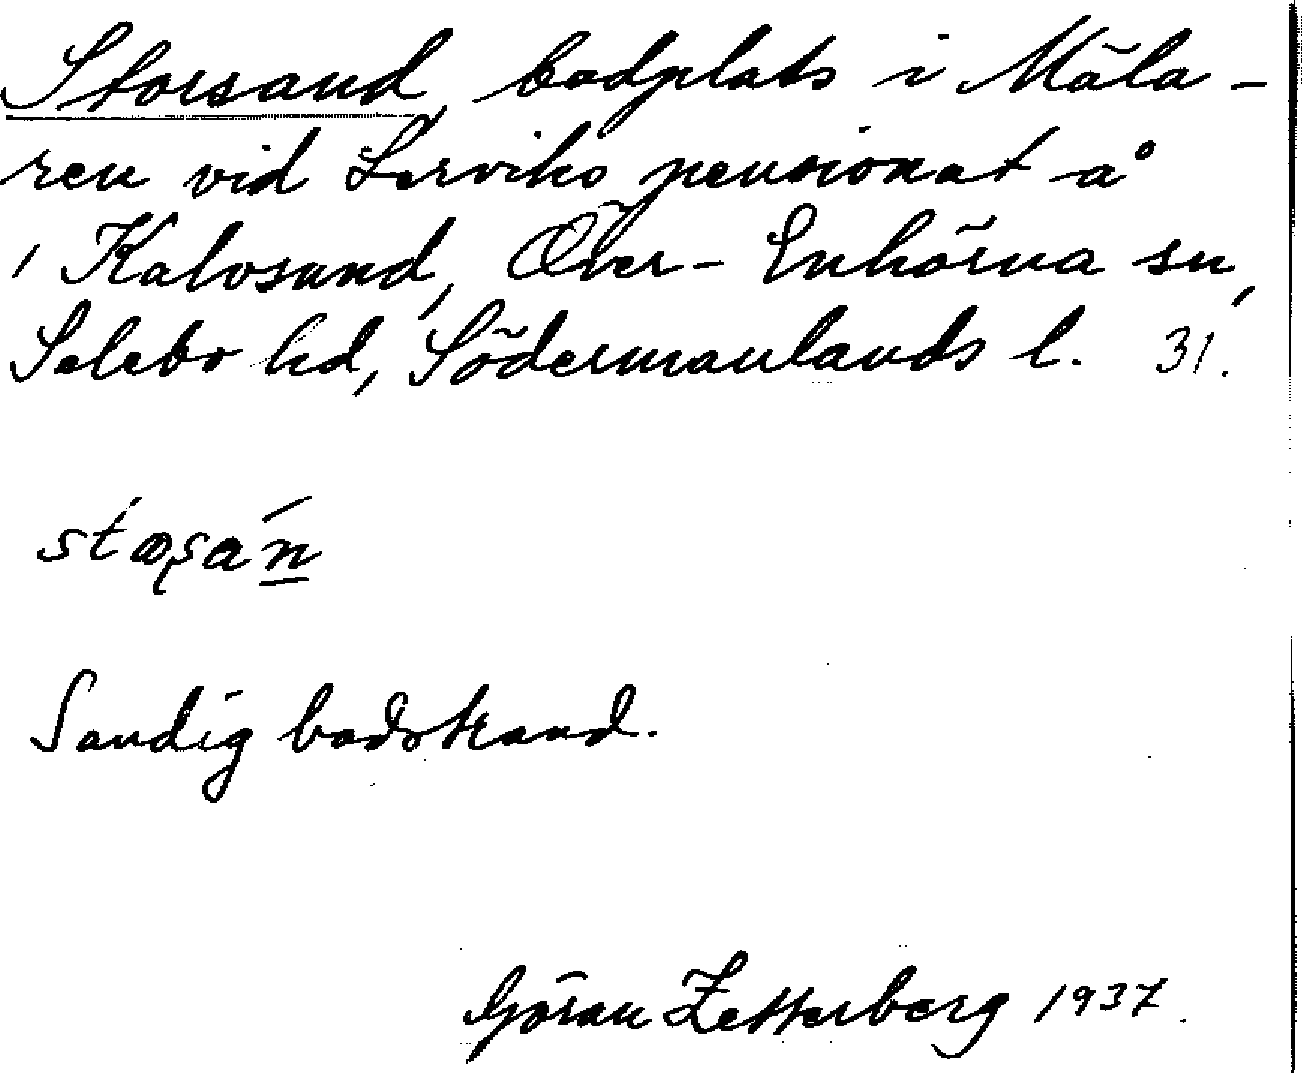 Storsand, badplats i Mäla-
ren vid Lerviks pensionat å
Kalvsund, Över-Enhörna sn,
Selebo hd, Södermanlands l. 31.
Sandig badstrand.
Göran Zetterberg 1937.